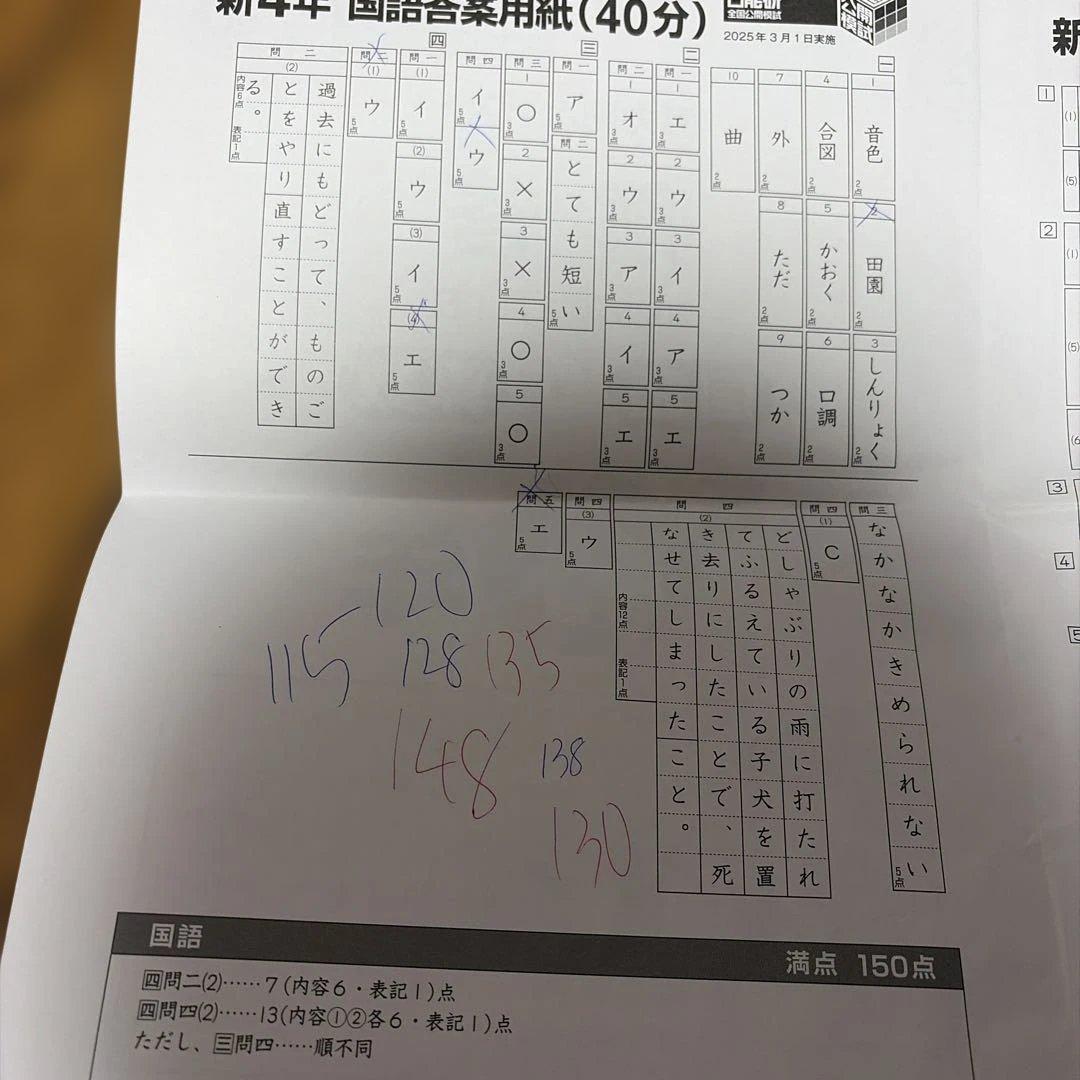 新4年 国語答案用紙(40分)
日能研
全国公開模試
公開模試
2025年3月1日実施
一
1 音色 2点
2 田園 2点
3 しんりょく 2点
4 合図 2点
5 かおく 2点
6 口調 2点
7 外 2点
8 ただ 2点
9 つか 2点
10 曲 2点
二
問一
1 エ 3点
2 ウ 3点
3 イ 3点
4 ア 3点
5 エ 3点
問二
1 オ 3点
2 ウ 3点
3 ア 3点
4 イ 3点
5 エ 3点
三
問一 ア 5点
問二 とても短い 5点
問三
1 ○ 3点
2 × 3点
3 × 3点
4 ○ 3点
5 ○ 3点
問四 イ 5点
ウ 5点
四
問一
(1) イ 5点
(2) ウ 5点
(3) イ 5点
(4) エ 5点
問二
(1) ウ 5点
問二
(2)
過去にもどって、ものご
とをやり直すことができ
る。
内容6点 表記1点
問三 なかなかきめられない 5点
問四
(1) C 5点
問四
(2)
どしゃぶりの雨に打たれ
てふるえている子犬を置
き去りにしたことで、死
なせてしまったこと。
内容12点 表記1点
問四
(3) ウ 5点
問五 エ 5点
120
115
128 135
148 138
130
国語
満点 150点
四問二(2)……7(内容6・表記1)点
四問四(2)……13(内容①②各6・表記1)点
ただし、三問四……順不同
新
1
(1)
(5)
2
(1)
(5)
(6
3
4
5